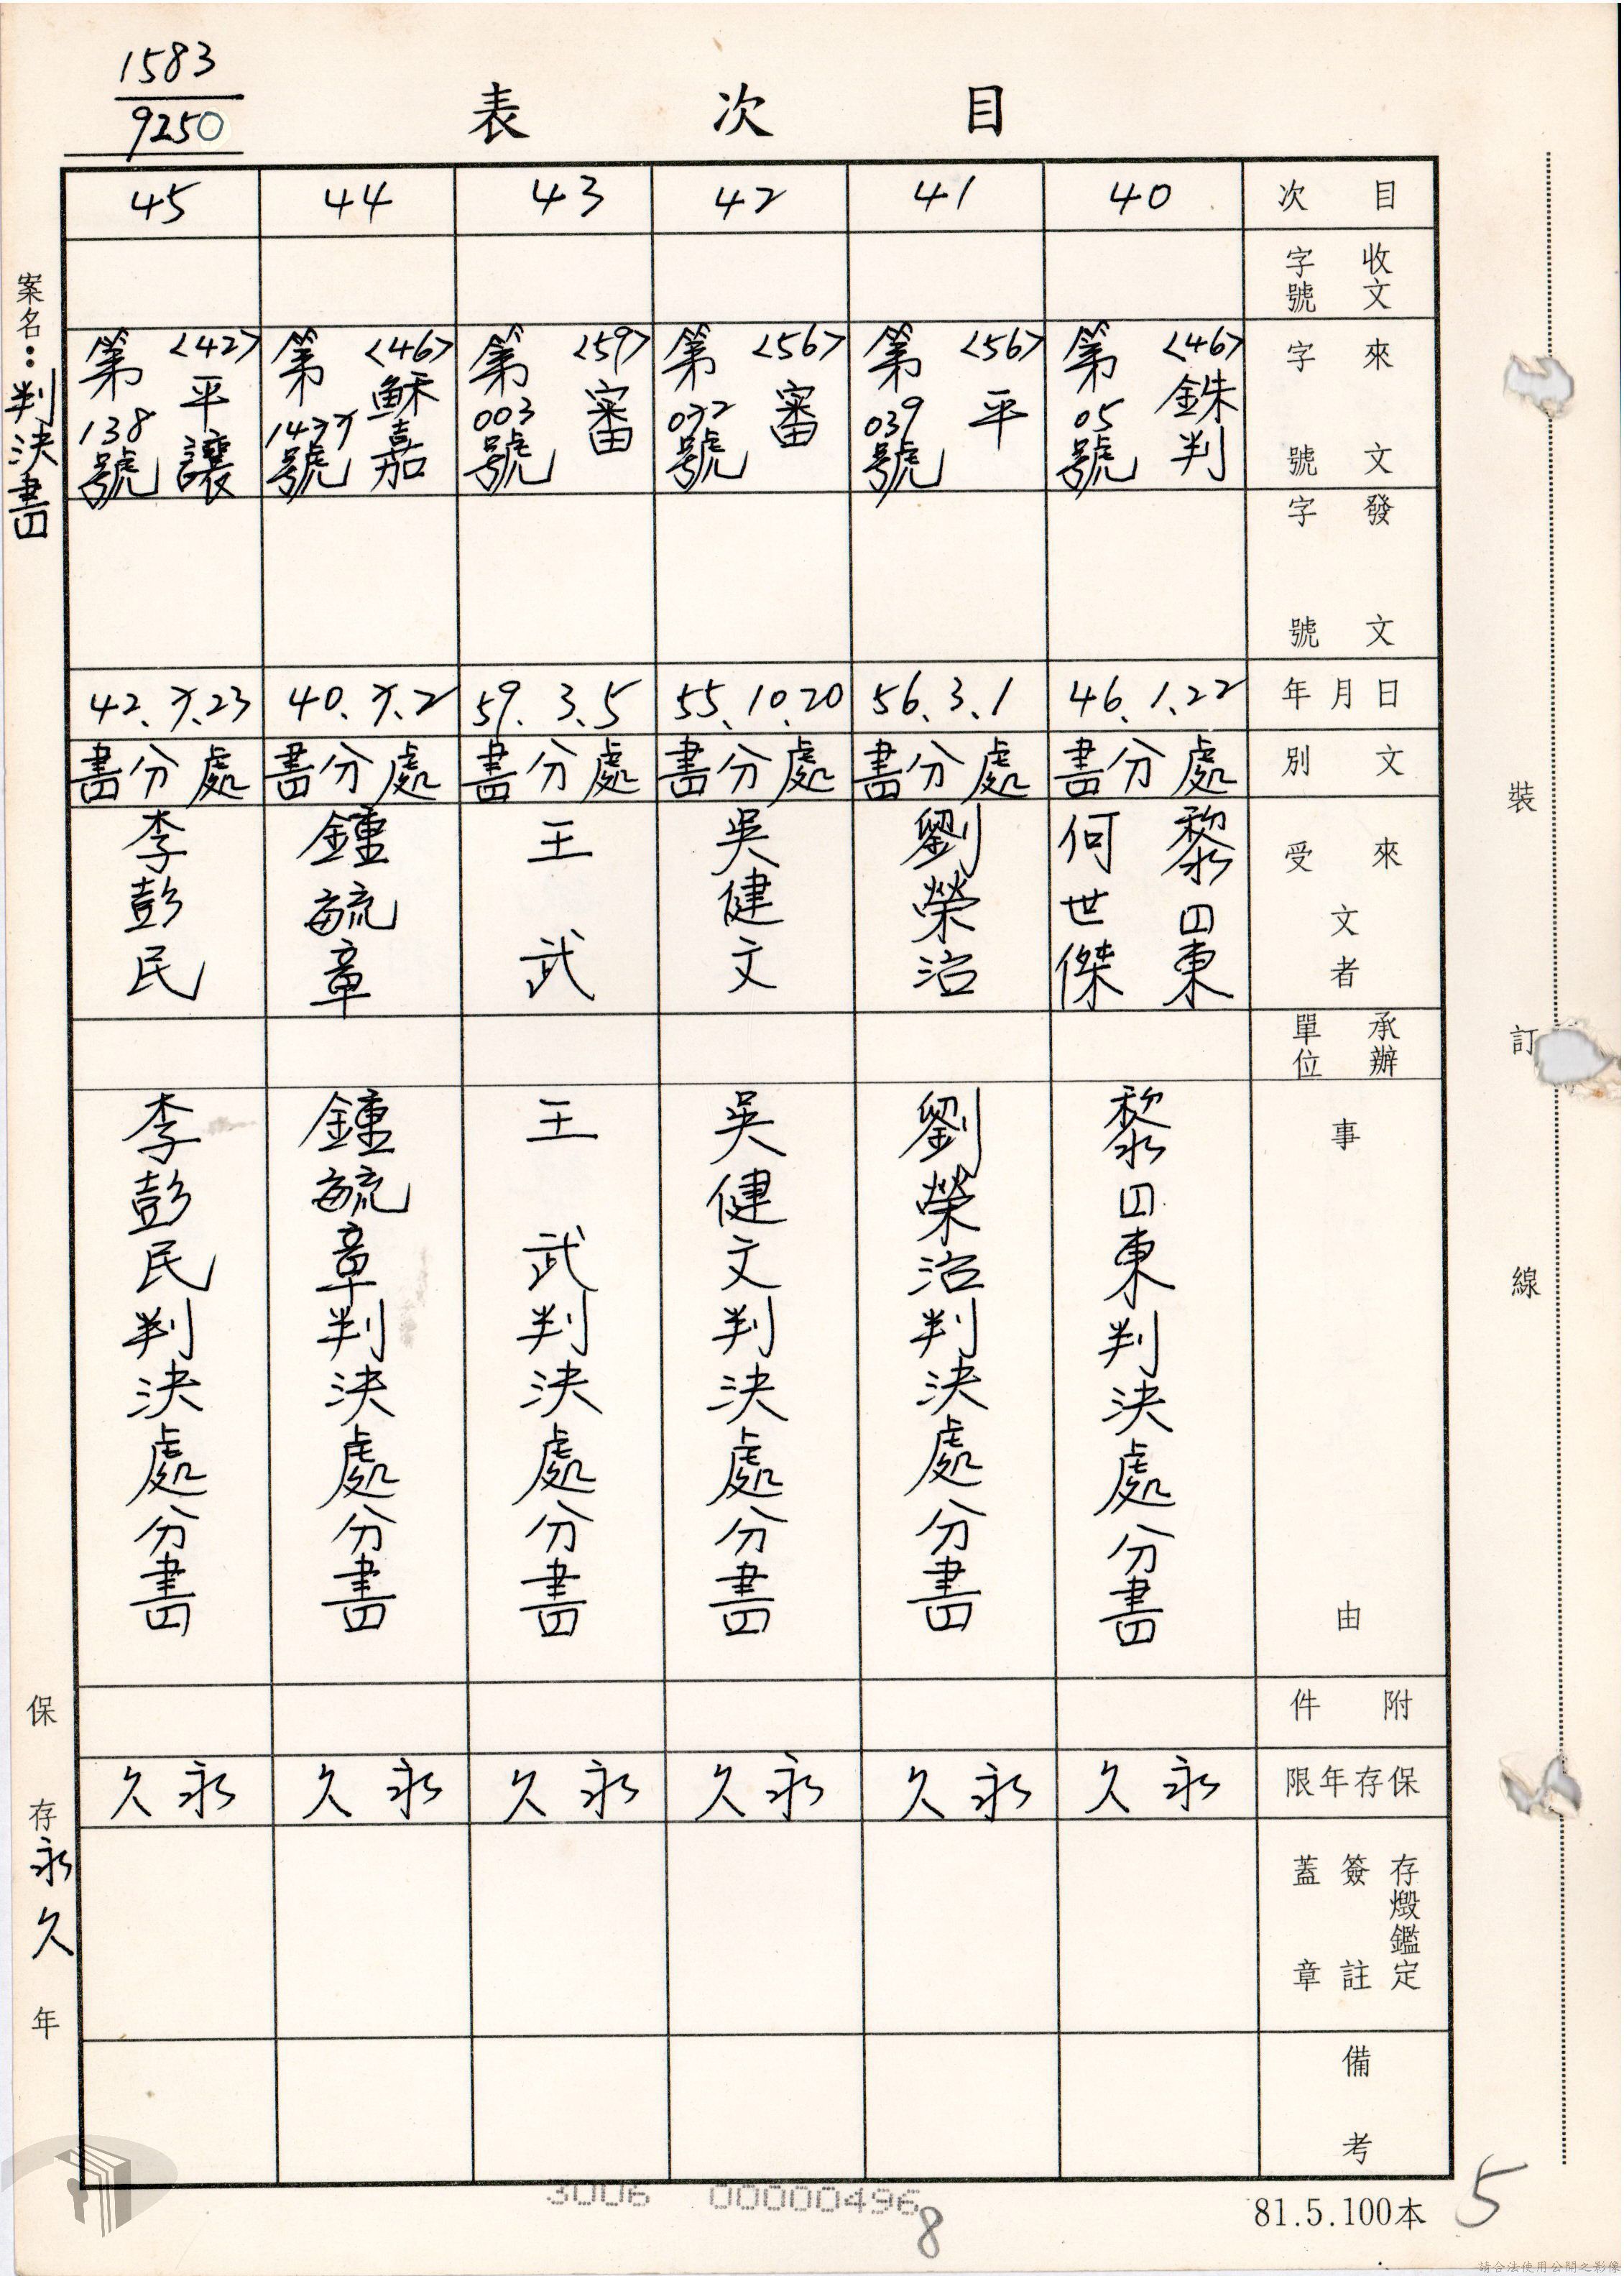 1583
9250
目次表
案名：判決書
保存永久年
目次
收文字號
來文字號
發文字號
年月日
文別
來受文者
承辦單位
事由
附件
保存年限
存燬鑑定
簽註
蓋章
備考
40
<46>銖判
第05號
46.1.22
處分書
黎四東
何世傑
黎四東判決處分書
永久
41
<56>平
第039號
56.3.1
處分書
劉榮治
劉榮治判決處分書
永久
42
<56>審
第072號
55.10.20
處分書
吳健文
吳健文判決處分書
永久
43
<59>審
第003號
59.3.5
處分書
王武
王武判決處分書
永久
44
<46>穌嘉
第1477號
40.7.2
處分書
鍾毓章
鍾毓章判決處分書
永久
45
<42>平讓
第138號
42.7.23
處分書
李彭民
李彭民判決處分書
永久
裝訂線
3006 00000496
8
81.5.100本
5
請合法使用公開之影像